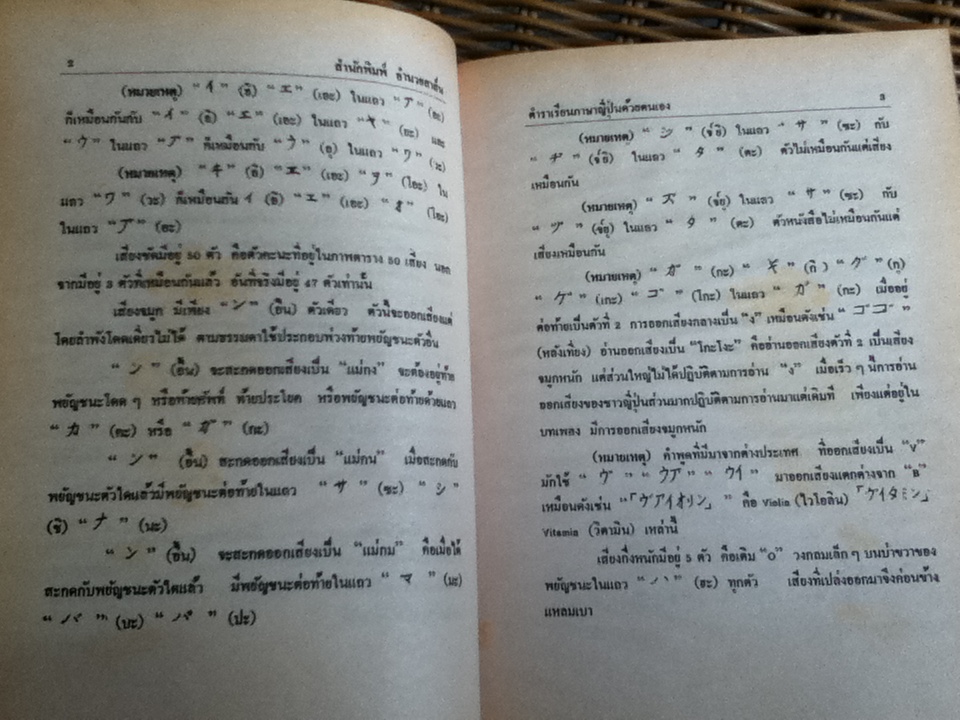 2
สำนักพิมพ์ อำนวยสาส์น
(หมายเหตุ) “イ” (อิ) “エ” (เอะ) ในแถว “ア” (อะ)
ก็เหมือนกันกับ “イ” (อิ) “エ” (เอะ) ในแถว “ヤ” (ยะ) และ
“ウ” ในแถว “ア” ก็เหมือนกับ “ウ” (อุ) ในแถว “ワ” (วะ)
(หมายเหตุ) “ヰ” (อิ) “エ” (เอะ) “ヲ” (โอะ) ใน
แถว “ワ” (วะ) ก็เหมือนกัน イ (อิ) “エ” (เอะ) (โอะ)
ในแถว “ア” (อะ)
เสียงชัดมีอยู่ 50 ตัว คือตัวคะนะที่อยู่ในภาพตาราง 50 เสียง นอก
จากมีอยู่ 3 ตัวที่เหมือนกันแล้ว อันที่จริงมีอยู่ 47 ตัวเท่านั้น
เสียงจมูก มีเพียง “ン” (อึน) ตัวเดียว ตัวนี้จะออกเสียงแต่
โดยลำพังโดดเดี่ยวไม่ได้ ตามธรรมดาใช้ประกอบพ่วงท้ายพยัญชนะตัวอื่น
“ン” (อึน) จะสะกดออกเสียงเป็น “แม่กง” จะต้องอยู่ท้าย
พยัญชนะโดด ๆ หรือท้ายศัพท์ ท้ายประโยค หรือพยัญชนะต่อท้ายด้วยแถว
“カ” (คะ) หรือ “ガ” (กะ)
“ン” (อึน) สะกดออกเสียงเป็น “แม่กน” เมื่อสะกดกับ
พยัญชนะตัวใดแล้วมีพยัญชนะต่อท้ายในแถว “サ” (ซะ) “シ”
(ชิ) “ナ” (นะ)
“ン” (อึน) จะสะกดออกเสียงเป็น “แม่กม” คือเมื่อได้
สะกดกับพยัญชนะตัวใดแล้ว มีพยัญชนะต่อท้ายในแถว “マ” (มะ)
“バ” (บะ) “パ” (ปะ)
ตำราเรียนภาษาญี่ปุ่นด้วยตนเอง
3
(หมายเหตุ) “ジ” (จ์ยิ) ในแถว “サ” (ซะ) กับ
“ヂ” (จ์ยิ) ในแถว “タ” (ตะ) ตัวไม่เหมือนกันแต่เสียง
เหมือนกัน
(หมายเหตุ) “ズ” (จ์ยุ) ในแถว “サ” (ซะ) กับ
“ヅ” (จ์ยุ) ในแถว “タ” (ตะ) ตัวหนังสือไม่เหมือนกันแต่
เสียงเหมือนกัน
(หมายเหตุ) “ガ” (กะ) “ギ” (กิ) “グ” (กุ)
“ゲ” (เกะ) “ゴ” (โกะ) ในแถว “ガ” (กะ) เมื่ออยู่
ต่อท้ายเป็นตัวที่ 2 การออกเสียงกลางเป็น “ง” เหมือนดังเช่น “ゴゴ”
(หลังเที่ยง) อ่านออกเสียงเป็น “โกะโงะ” คืออ่านออกเสียงตัวที่ 2 เป็นเสียง
จมูกหนัก แต่ส่วนใหญ่ไม่ได้ปฏิบัติตามการอ่าน “ง” เมื่อเร็ว ๆ นี้การอ่าน
ออกเสียงของชาวญี่ปุ่นส่วนมากปฏิบัติตามการอ่านมาแต่เดิมที เพียงแต่อยู่ใน
บทเพลง มีการออกเสียงจมูกหนัก
(หมายเหตุ) คำพูดที่มีมาจากต่างประเทศ ที่ออกเสียงเป็น “v”
มักใช้ “ヴ” “ヴア” “ウイ” มาออกเสียงแตกต่างจาก “B”
เหมือนดังเช่น “「ヴアイオリン」” คือ Violin (ไวโอลิน) 「ケイタミン」
Vitamin (วิตามิน) เหล่านี้
เสียงกึ่งหนักมีอยู่ 5 ตัว คือเติม “o” วงกลมเล็ก ๆ บนบ่าขวาของ
พยัญชนะในแถว “ハ” (ฮะ) ทุกตัว เสียงที่เปล่งออกมาจึงค่อนข้าง
แหลมเบา